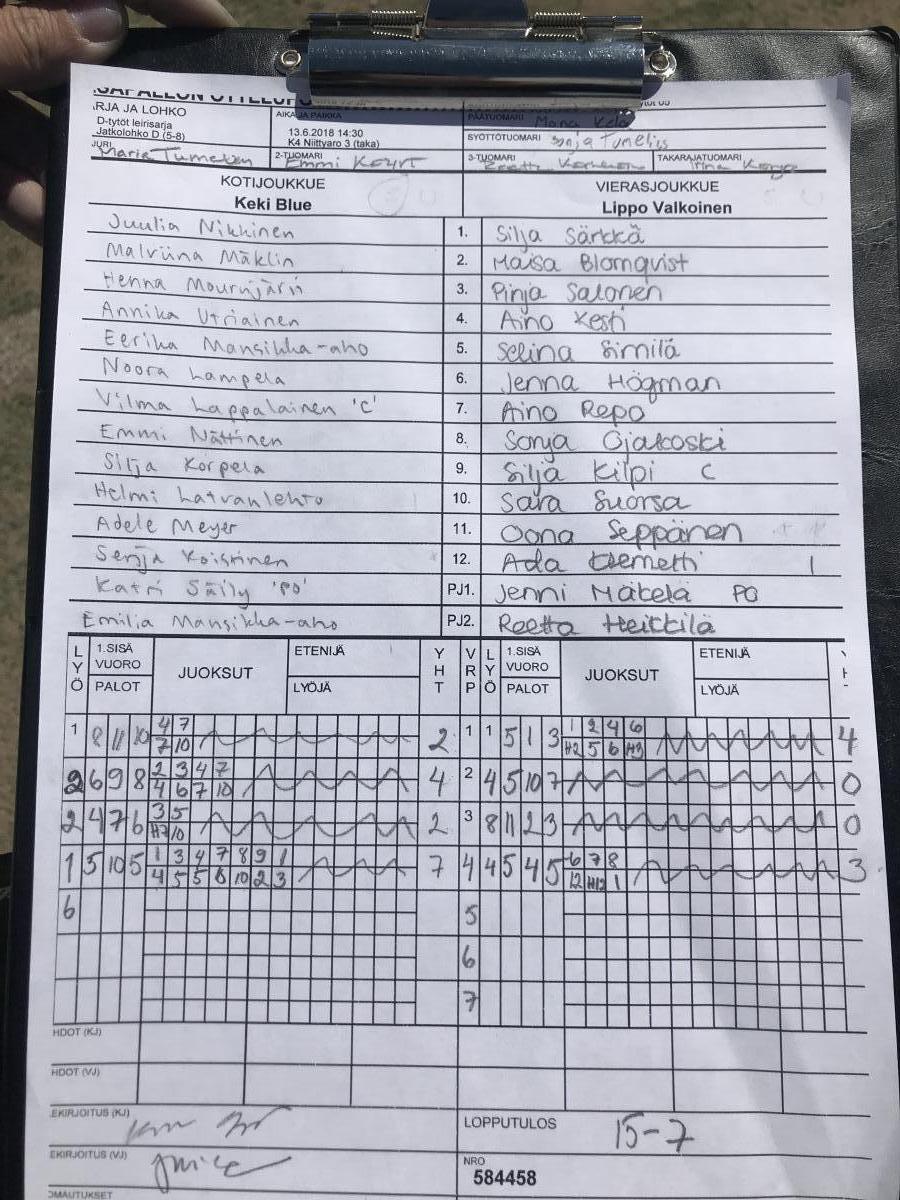 RJA JA LOHKO
D-tytöt leirisarja
Jatkolohko D (5-8)
AIKA JA PAIKKA
13.6.2018 14:30
K4 Niittyaro 3 (taka)
PÄÄTUOMARI
SYÖTTÖTUOMARI Sonja Tumelius
JURI
2-TUOMARI Emmi
3-TUOMARI
TAKARAJATUOMARI
KOTIJOUKKUE
Keki Blue
VIERASJOUKKUE
Lippo Valkoinen
Juulia Nikkinen 1. Silja Särkkä
Malviina Mäklin 2. Maisa Blomqvist
Henna Mourujärvi 3. Pinja Salonen
Annika Utriainen 4. Aino Kesti
Eerika Mansikka-aho 5. Selina Simila
Noora Lampela 6. Jenna Högman
Vilma Lappalainen 'C' 7. Aino Repo
Emmi Nättinen 8. Sonja Ojakoski
Silja Korpela 9. Silja Kilpi C
Helmi Latvanlehto 10. Sara Suorsa
Adele Meyer 11. Oona Seppänen
Senja Koistinen 12. Ada I
Katri Säily 'PO' PJ1. Jenni Mäkelä PO
Emilia Mansikka-aho PJ2. Reetta Heikkilä
LYÖ 1.SISÄ VUORO PALOT JUOKSUT ETENIJÄ LYÖJÄ YHT VRP LYÖ 1.SISÄ VUORO PALOT JUOKSUT ETENIJÄ LYÖJÄ
1 8 11 10 4 7 2 1 1 5 1 3 1 2 4 6 4
7 10 H2 5 6 H3
2 6 9 8 2 3 4 7 4 2 4 5 10 7 0
4 6 7 10
2 4 7 6 3 5 2 3 8 11 2 3 0
H7 10
1 5 10 5 1 3 4 7 8 9 1 7 4 4 5 4 5 6 7 8 3
4 5 5 8 10 2 3 12 H12 1
6 5
6
7
HDOT (KJ)
HDOT (VJ)
EKIRJOITUS (KJ)
LOPPUTULOS 15-7
EKIRJOITUS (VJ)
NRO
584458
OMAUTUKSET